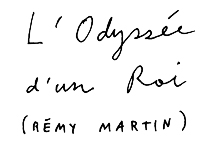 L'Odyssée
d'un Roi
(RÉMY MARTIN)